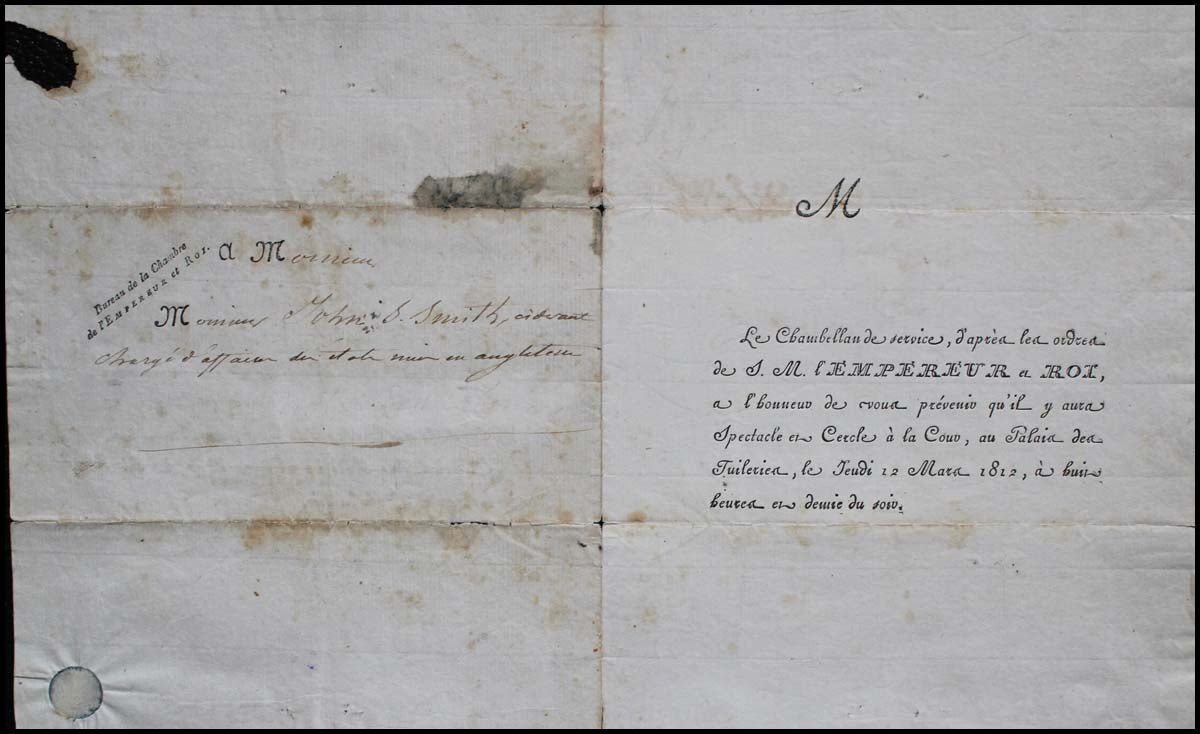 Bureau de la Chambre
de l'EMPEREUR et ROI.
A Monsieur
Monsieur John S. Smith, cidevant
chargé d'affaires des états unis en angleterre
M
Le Chambellan de service, d'après les ordres
de S. M. l'EMPEREUR et ROI,
a l'honneur de vous prévenir qu'il y aura
Spectacle et Cercle à la Cour, au Palais des
Tuileries, le Jeudi 12 Mars 1812, à huit
heures et demie du soir.